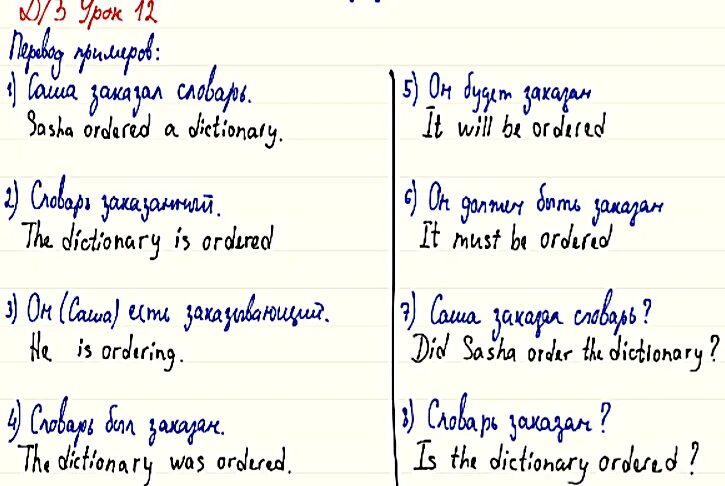 Д/З Урок 12
Перевод примеров:
1) Саша заказал словарь.
Sasha ordered a dictionary.
2) Словарь заказанный.
The dictionary is ordered
3) Он (Саша) есть заказывающий.
He is ordering.
4) Словарь был заказан.
The dictionary was ordered.
5) Он будет заказан
It will be ordered
6) Он должен быть заказан
It must be ordered
7) Саша заказал словарь?
Did Sasha order the dictionary?
8) Словарь заказан?
Is the dictionary ordered?